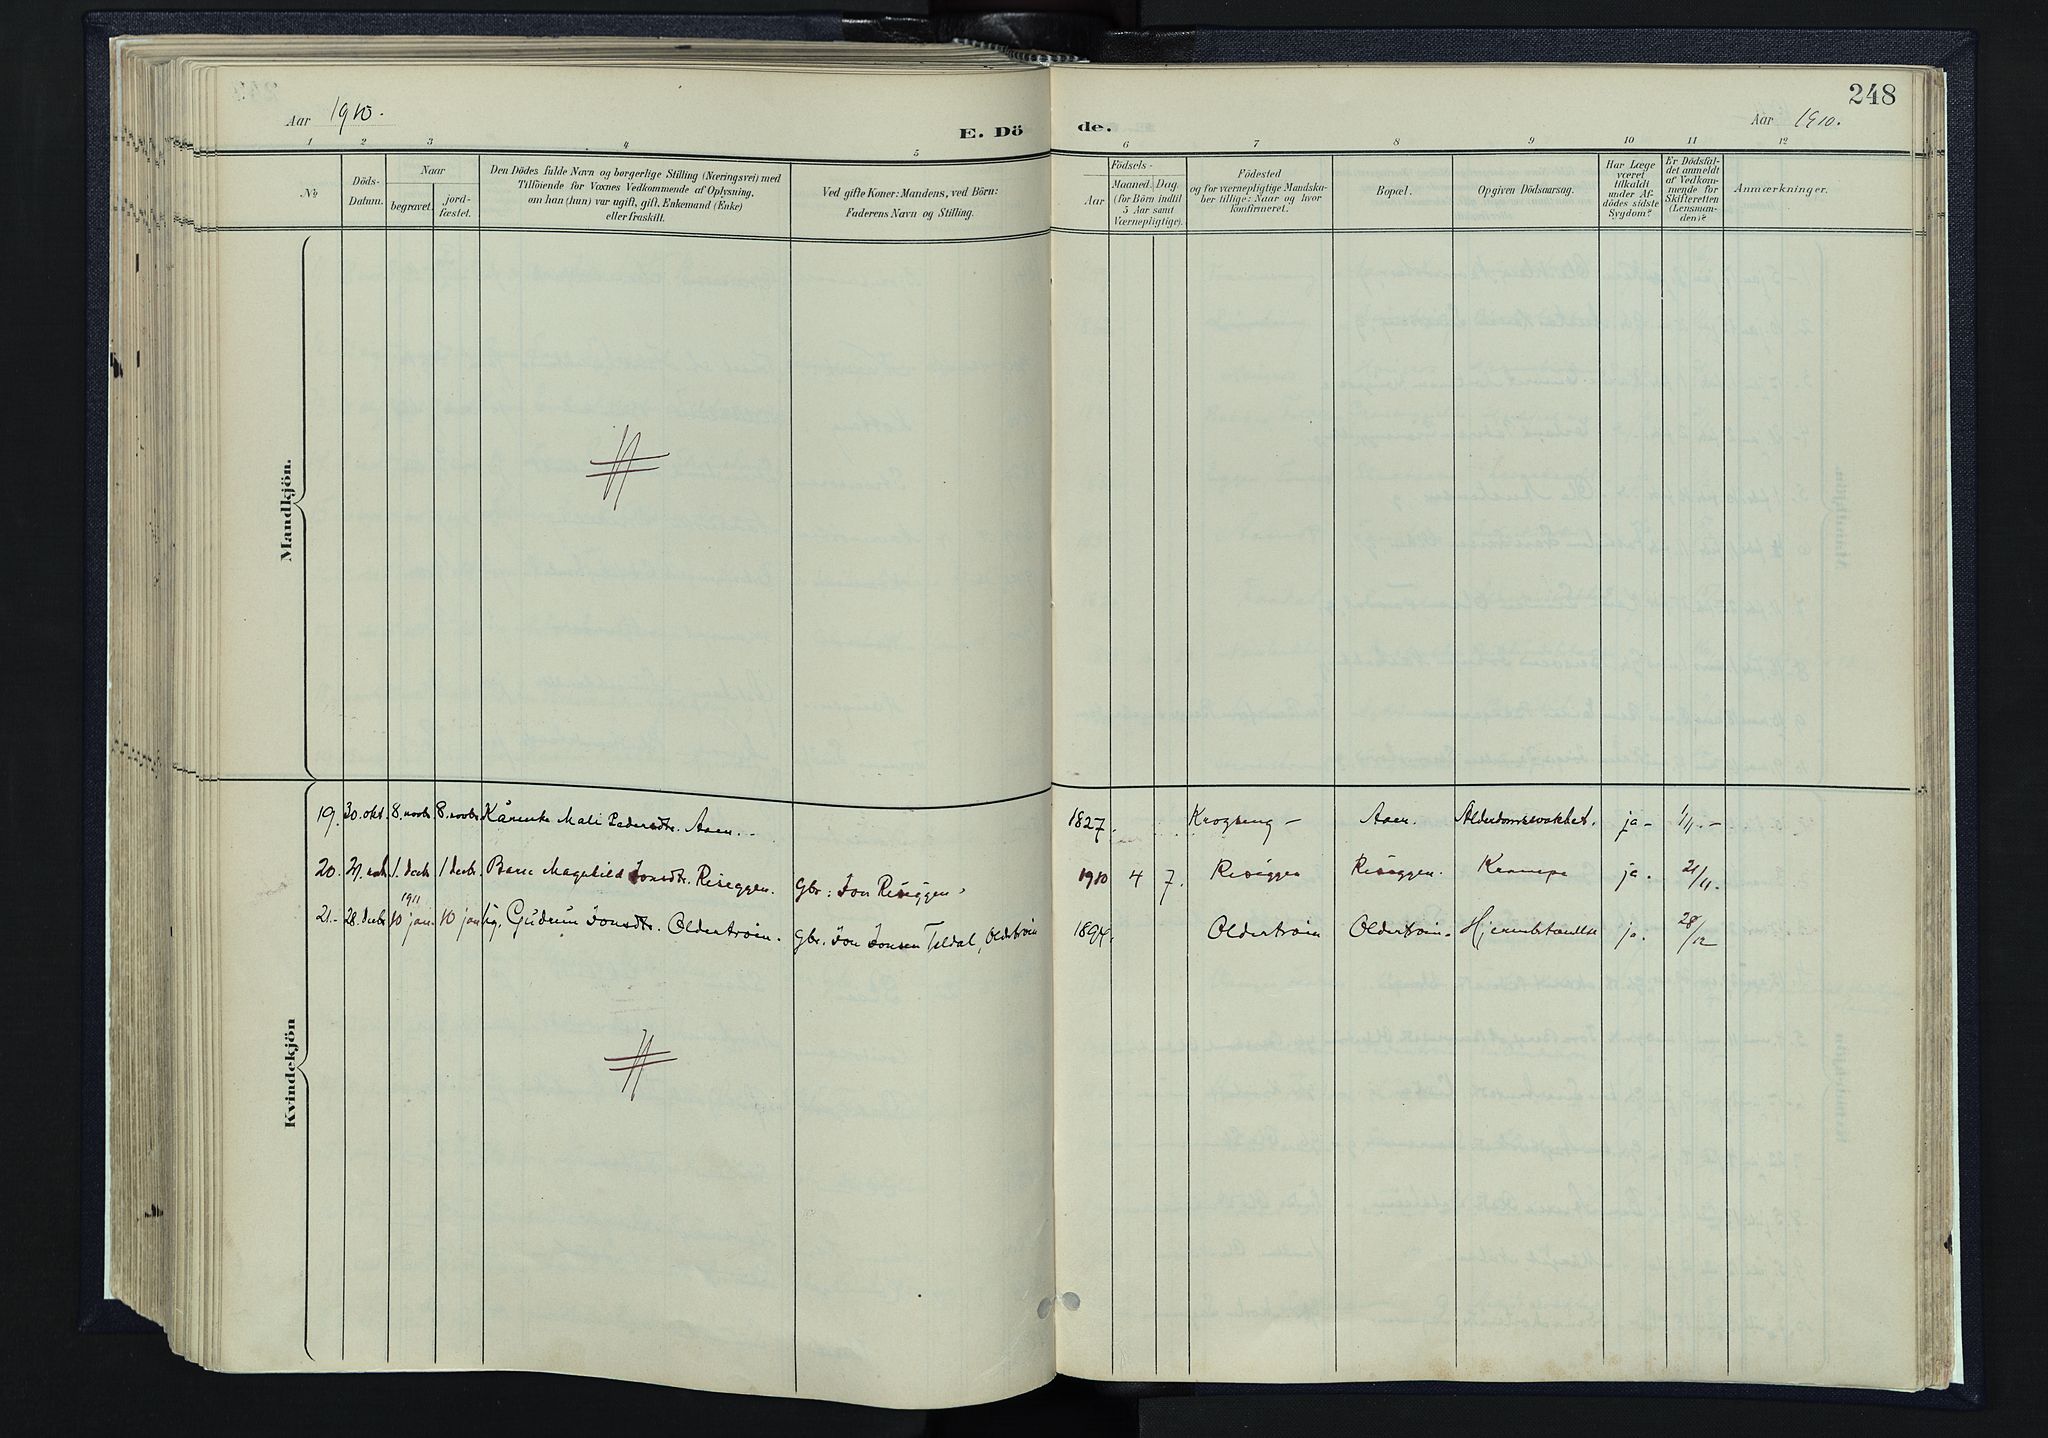 248
Aar 1910.
E. Dö de.
Aar 1910.
1 2 3 4 5 6 7 8 9 10 11 12
No
Döds-
Datum.
Naar
begravet.
jord-
fæstet.
Den Dödes fulde Navn og borgerlige Stilling (Næringsvei) med
Tilföiende for Voxnes Vedkommende af Oplysning,
om han (hun) var ugift, gift, Enkemand (Enke)
eller fraskilt.
Ved gifte Koner: Mandens, ved Börn:
Faderens Navn og Stilling.
Födsels-
Aar
Maaned. Dag.
(for Börn indtil
5 Aar samt
Værnepligtige).
Födested
og for værnepligtige Mandska-
ber tillige: Naar og hvor
konfirmeret.
Bopæl.
Opgiven Dödsaarsag.
Har Læge
været
tilkaldt
under Af-
dödes sidste
Sygdom?
Er Dödsfal-
det anmeldt
af Vedkom-
mende for
Skifteretten
(Lensman-
den)?
Anmærkninger.
Mandkjön.
Kvindekjön
19. 30. okt. 8. novbr 8. novbr Kårenke Mali Pedersdtr. Aaen. 1827. Krogseng – Aaen. Alderdomssvakhet. ja – 1/11. –
20. 1. decbr 1 decbr Barn Magnhild Jonsdtr. Riseggen. Gbr: Jon Riseggen. 1910 4 7. Riseggen Riseggen. ja. 21/11.
1911
21. 28. decbr 10 jan. 10 jan Gudrun Jonsdtr. Oldertrøen. Gbr. Jon Jonsen Teldal, Oldertrøen 1894. Oldertrøen Oldertrøen. ja. 28/12